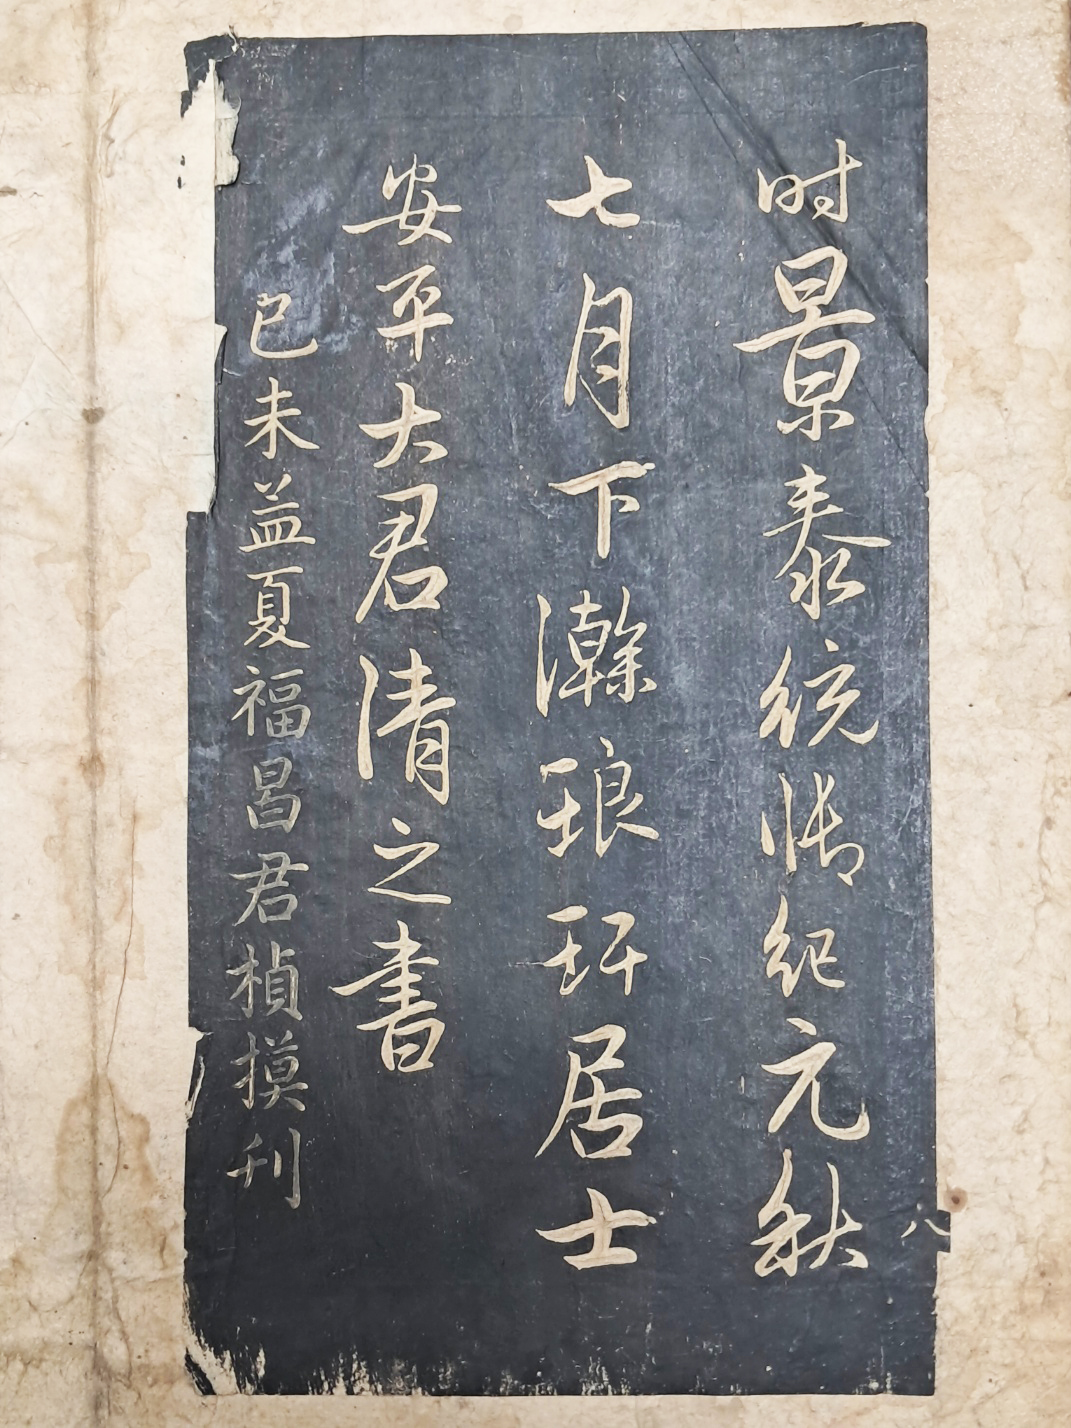 时景泰统情纪元秋
七月下澣琅玡居士
安平大君清之書
己未益夏福昌君楨摸刊
八